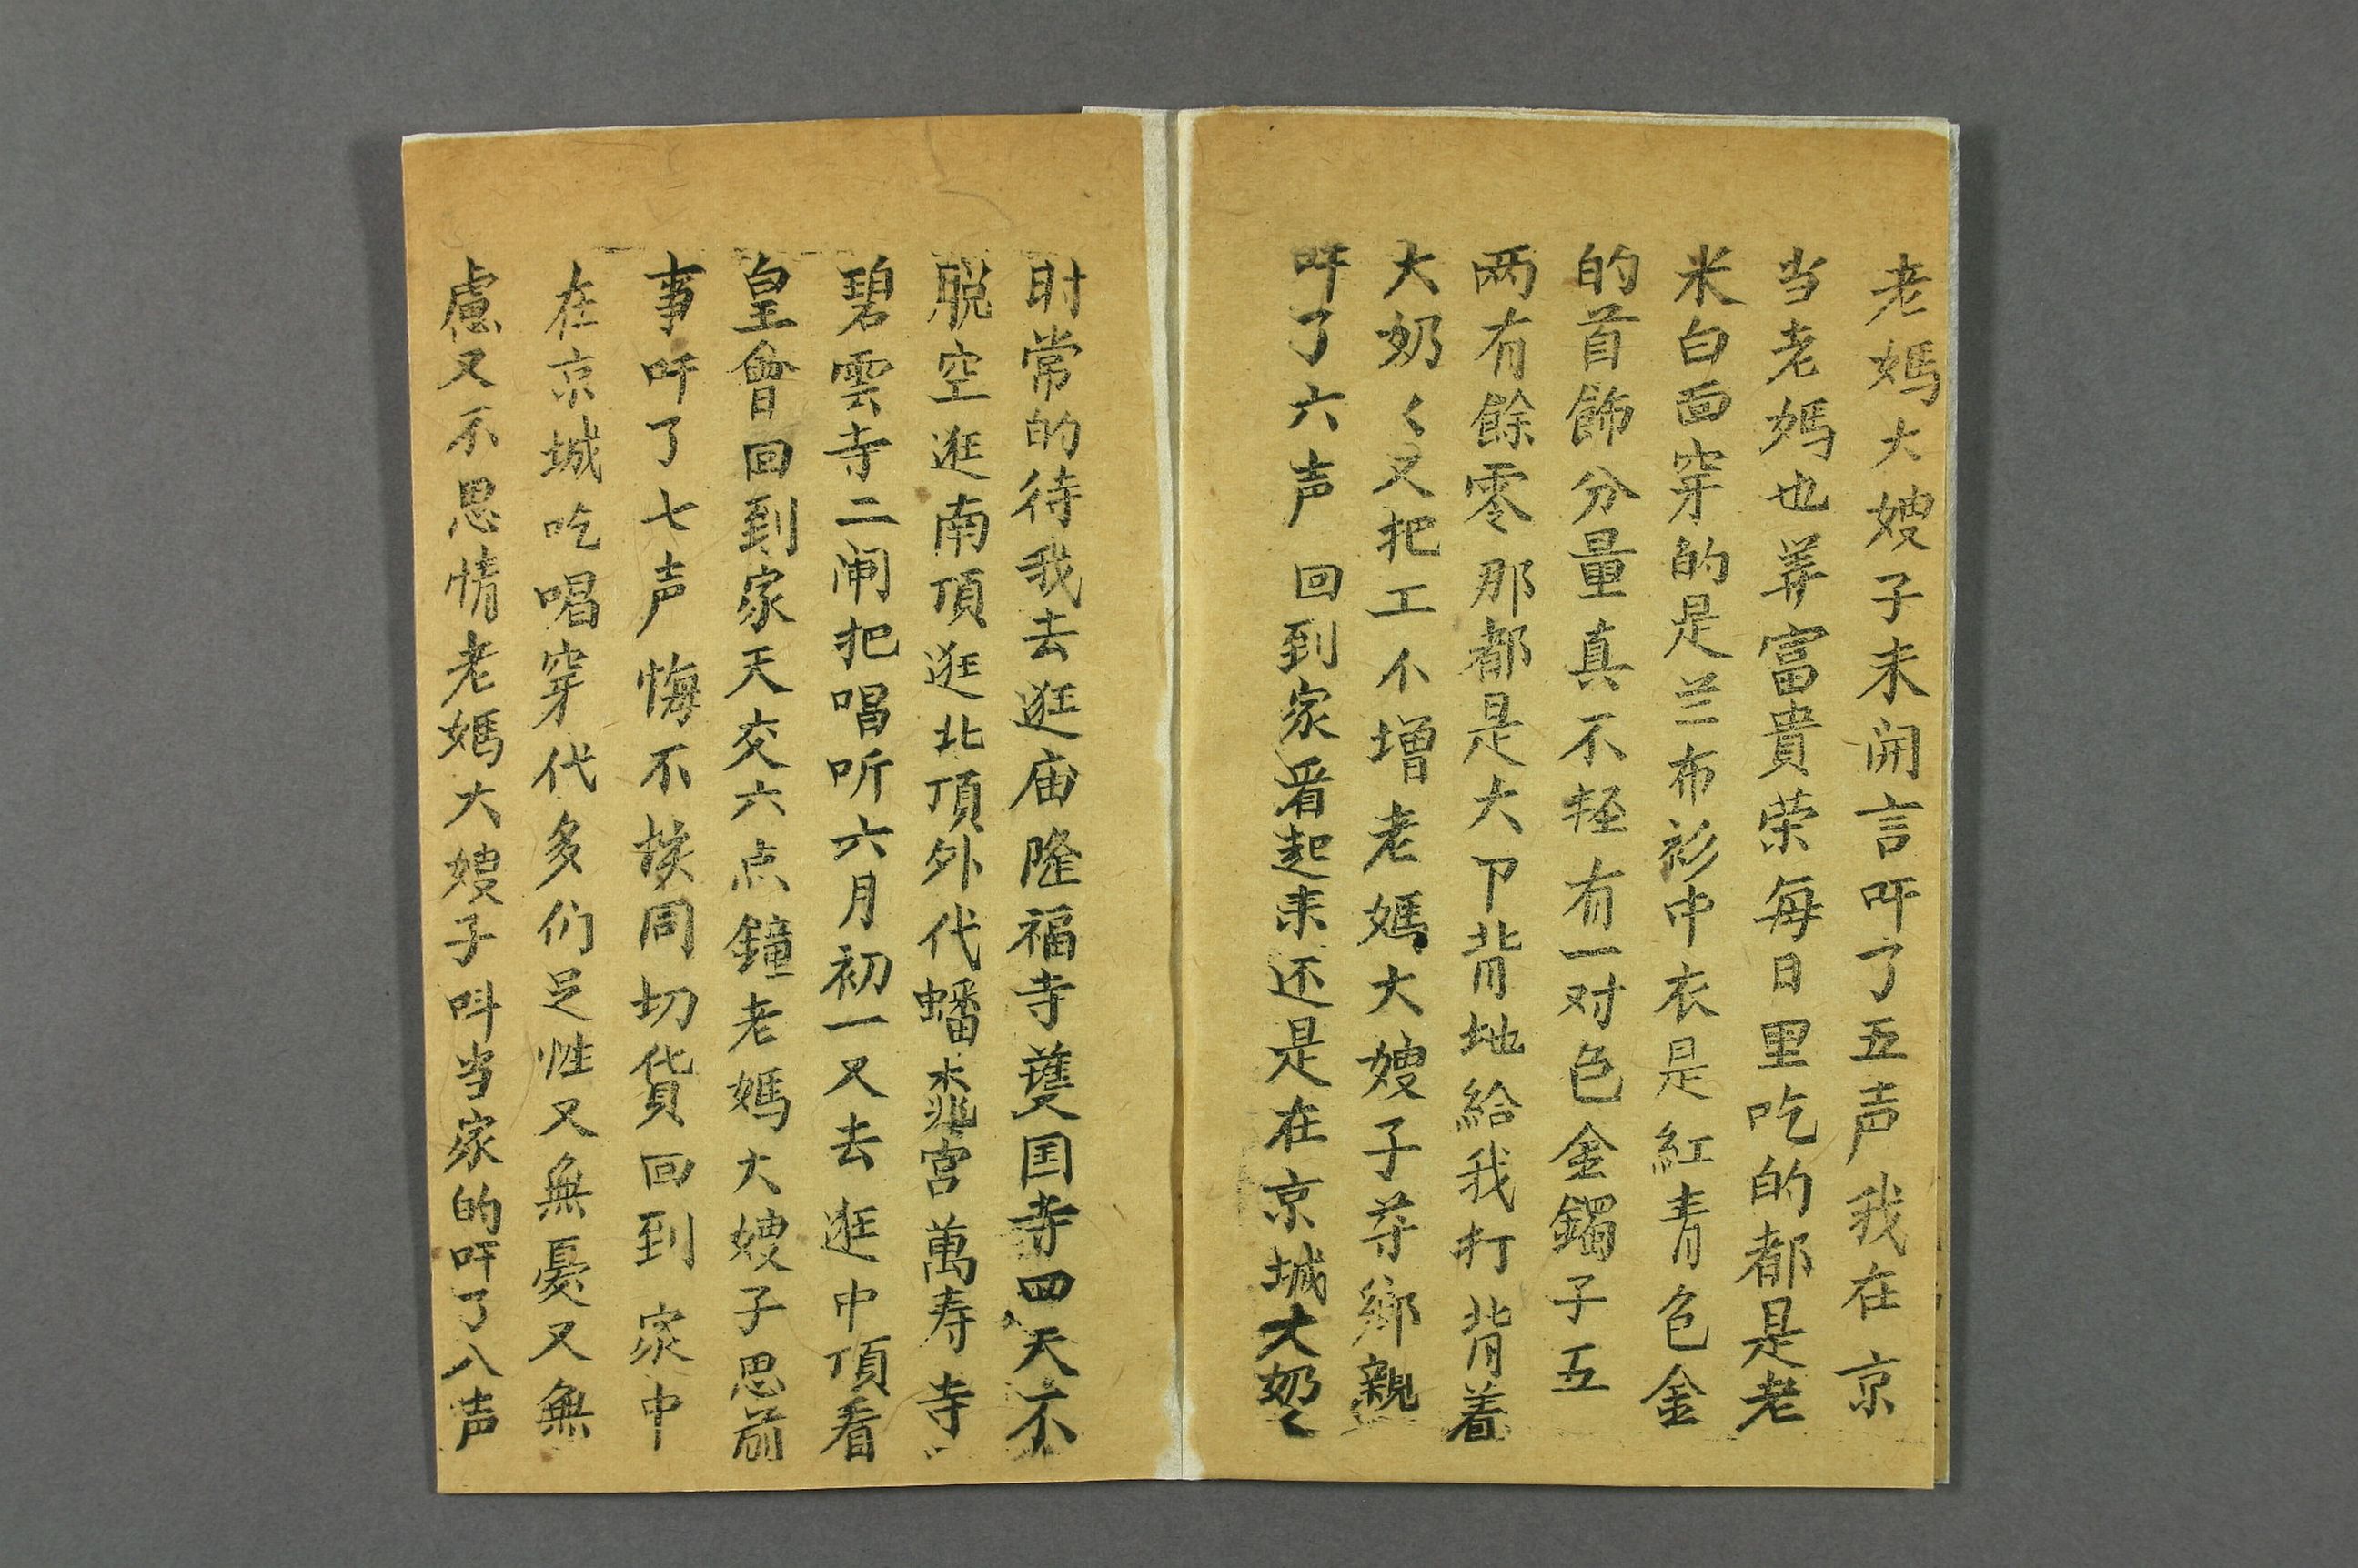 老媽大嫂子未開言吁了五声我在京
当老媽也算富貴荣每日里吃的都是老
米白面穿的是兰布衫中衣是紅青色金
的首飾分量真不轻有一对色金鐲子五
两有餘零那都是大卩背地給我打背着
大奶〻又把工个增老媽大嫂子等鄉親
吁了六声 回到家看起来还是在京城大奶〻
时常的待我去逛庙隆福寺護国寺四天不
脱空逛南頂逛北頂外代蟠桃宮萬寿寺
碧雲寺二闸把唱听六月初一又去逛中頂看
皇會回到家天交六点鐘老媽大嫂子思前
事吁了七声 悔不挨同切貨回到家中
在京城吃唱穿代多们足性又無憂又無
慮又不思情老媽大嫂子叫当家的吁了八声